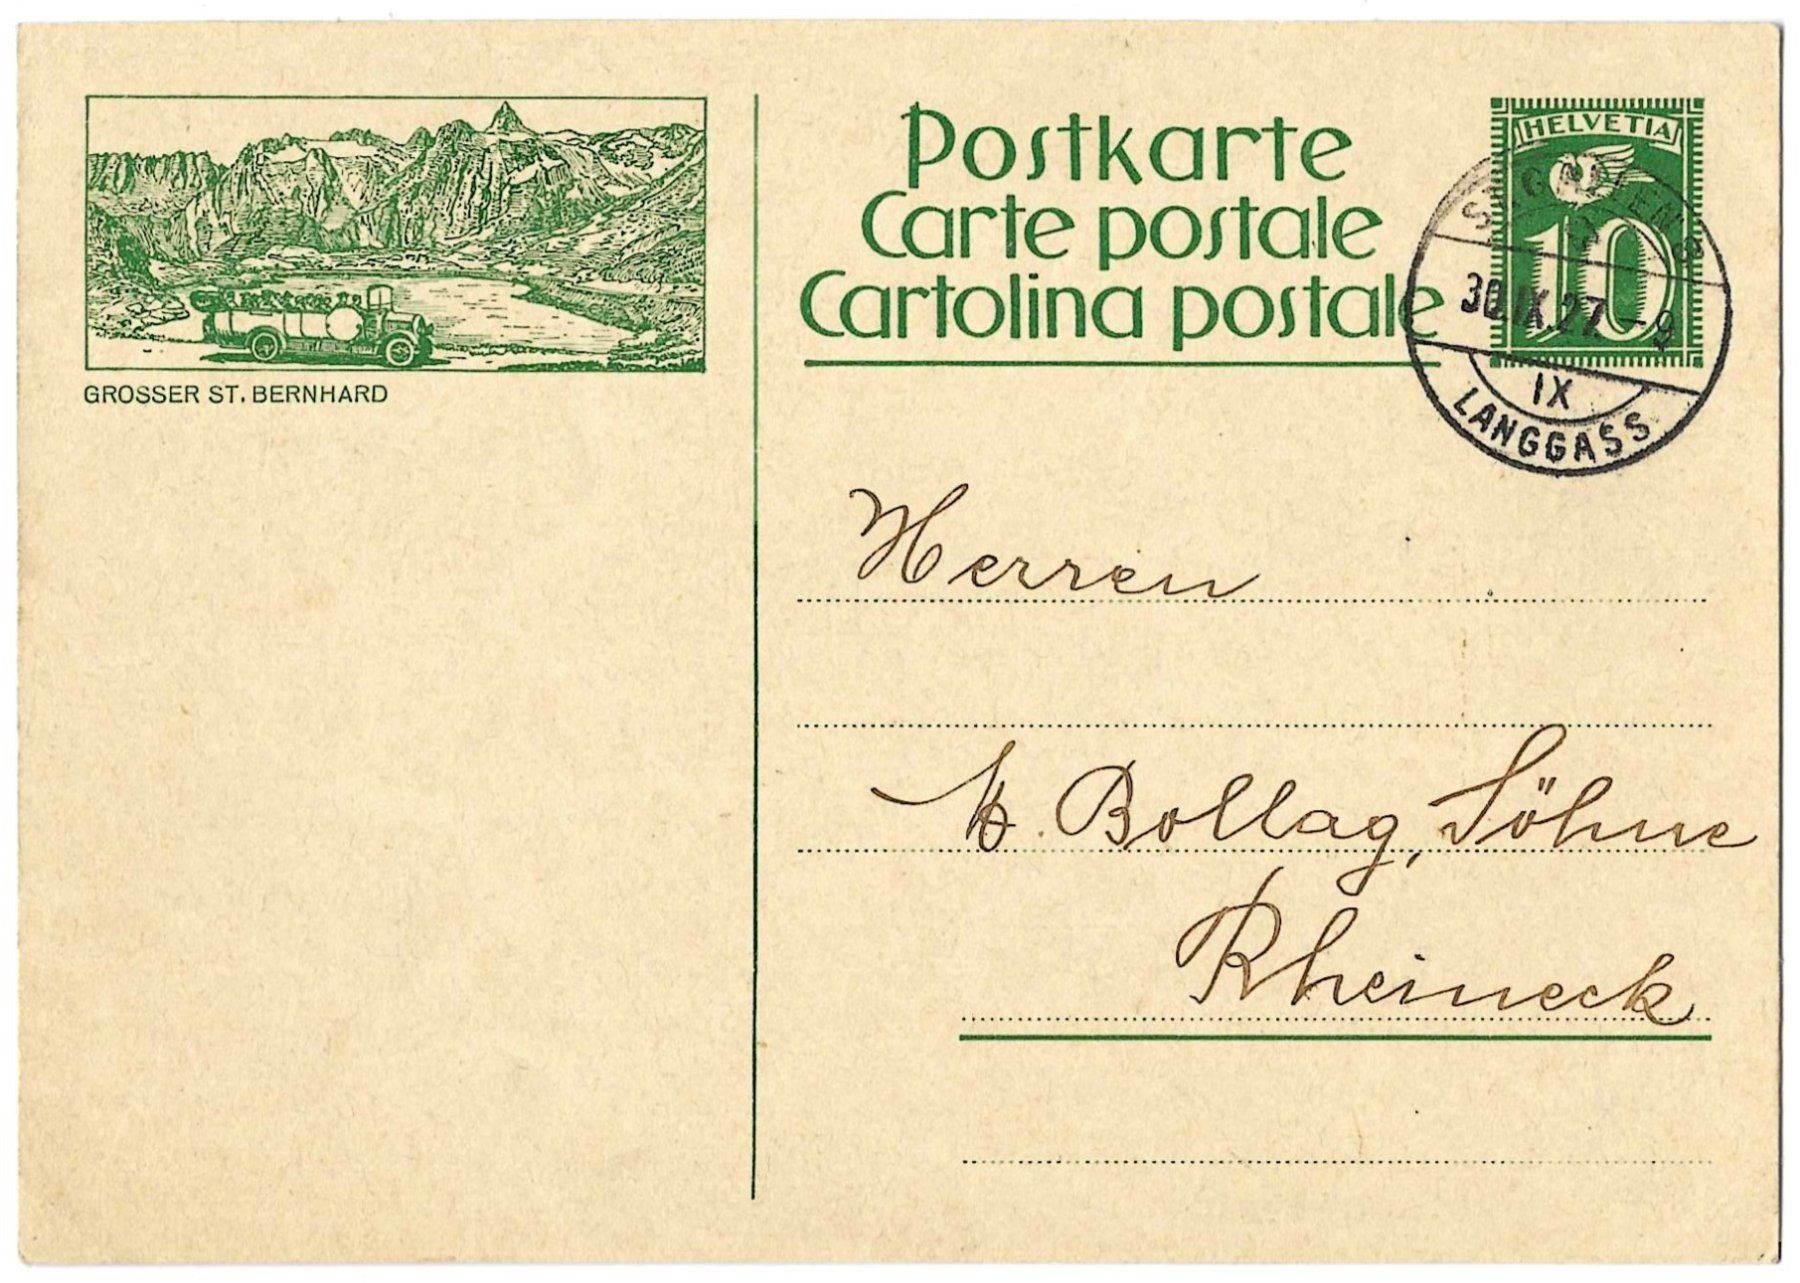 GROSSER ST. BERNHARD
Postkarte
Carte postale
Cartolina postale
HELVETIA
10
ST. GALLEN 8
30.IX.27.–9
IX
LANGGASS
Herren
Bollag, Söhne
Rheineck